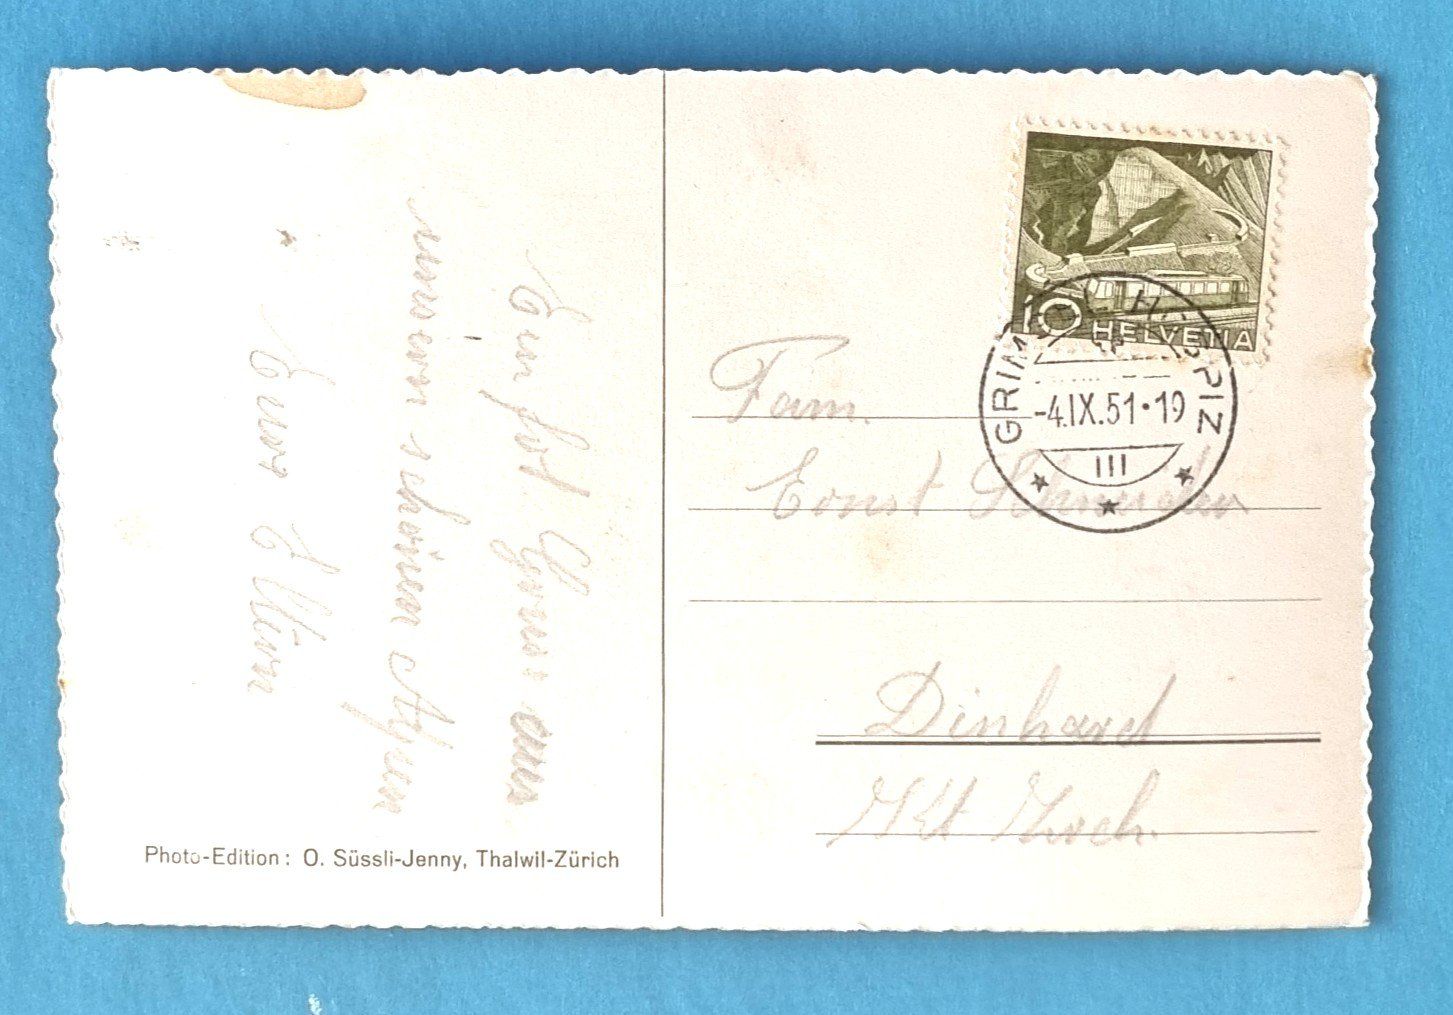 Ein fot Gruss aus
unseren schönen Alpen
Euer Ellien
Photo-Edition: O. Süssli-Jenny, Thalwil-Zürich
10 HELVETIA
GRIMSEL HOSPIZ
-4.IX.51•19
III
Fam.
Ernst Schneider
Dinhard
Kt Zrch.